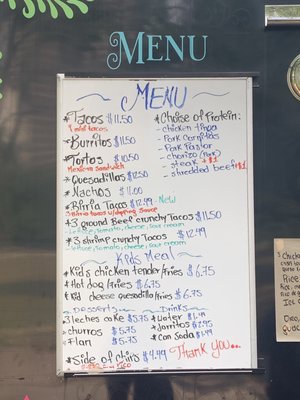 MENU
MENU
*Tacos $11.50
*Burritos $11.50
*Tortas $10.50
Mexican sandwich
*Quesadillas $12.50
*Nachos $11.00
*Birria Tacos $12.99 - New
3 Birria tacos w/dipping sauce
*3 ground Beef crunchy Tacos $11.50
lettuce, tomato, cheese, sour cream
*3 shrimp crunchy Tacos $12.99
lettuce, tomato, cheese, sour cream
*Choise of Protein:
- chicken tinga
- Pork Carnitas
- Pork Pastor
- chorizo (Pork)
- steak +$1
- shredded beef +$1
Kids Meal
*Kid's chicken tender/fries $6.75
*Hot dog/fries $6.75
*Kid cheese quesadilla/fries $6.75
Desserts
3 leches cake $5.75
*churros $5.75
*Flan $5.75
*Side of chips $4.99
Drinks
*Water
*Jarritos
*Can Soda
Thank you...